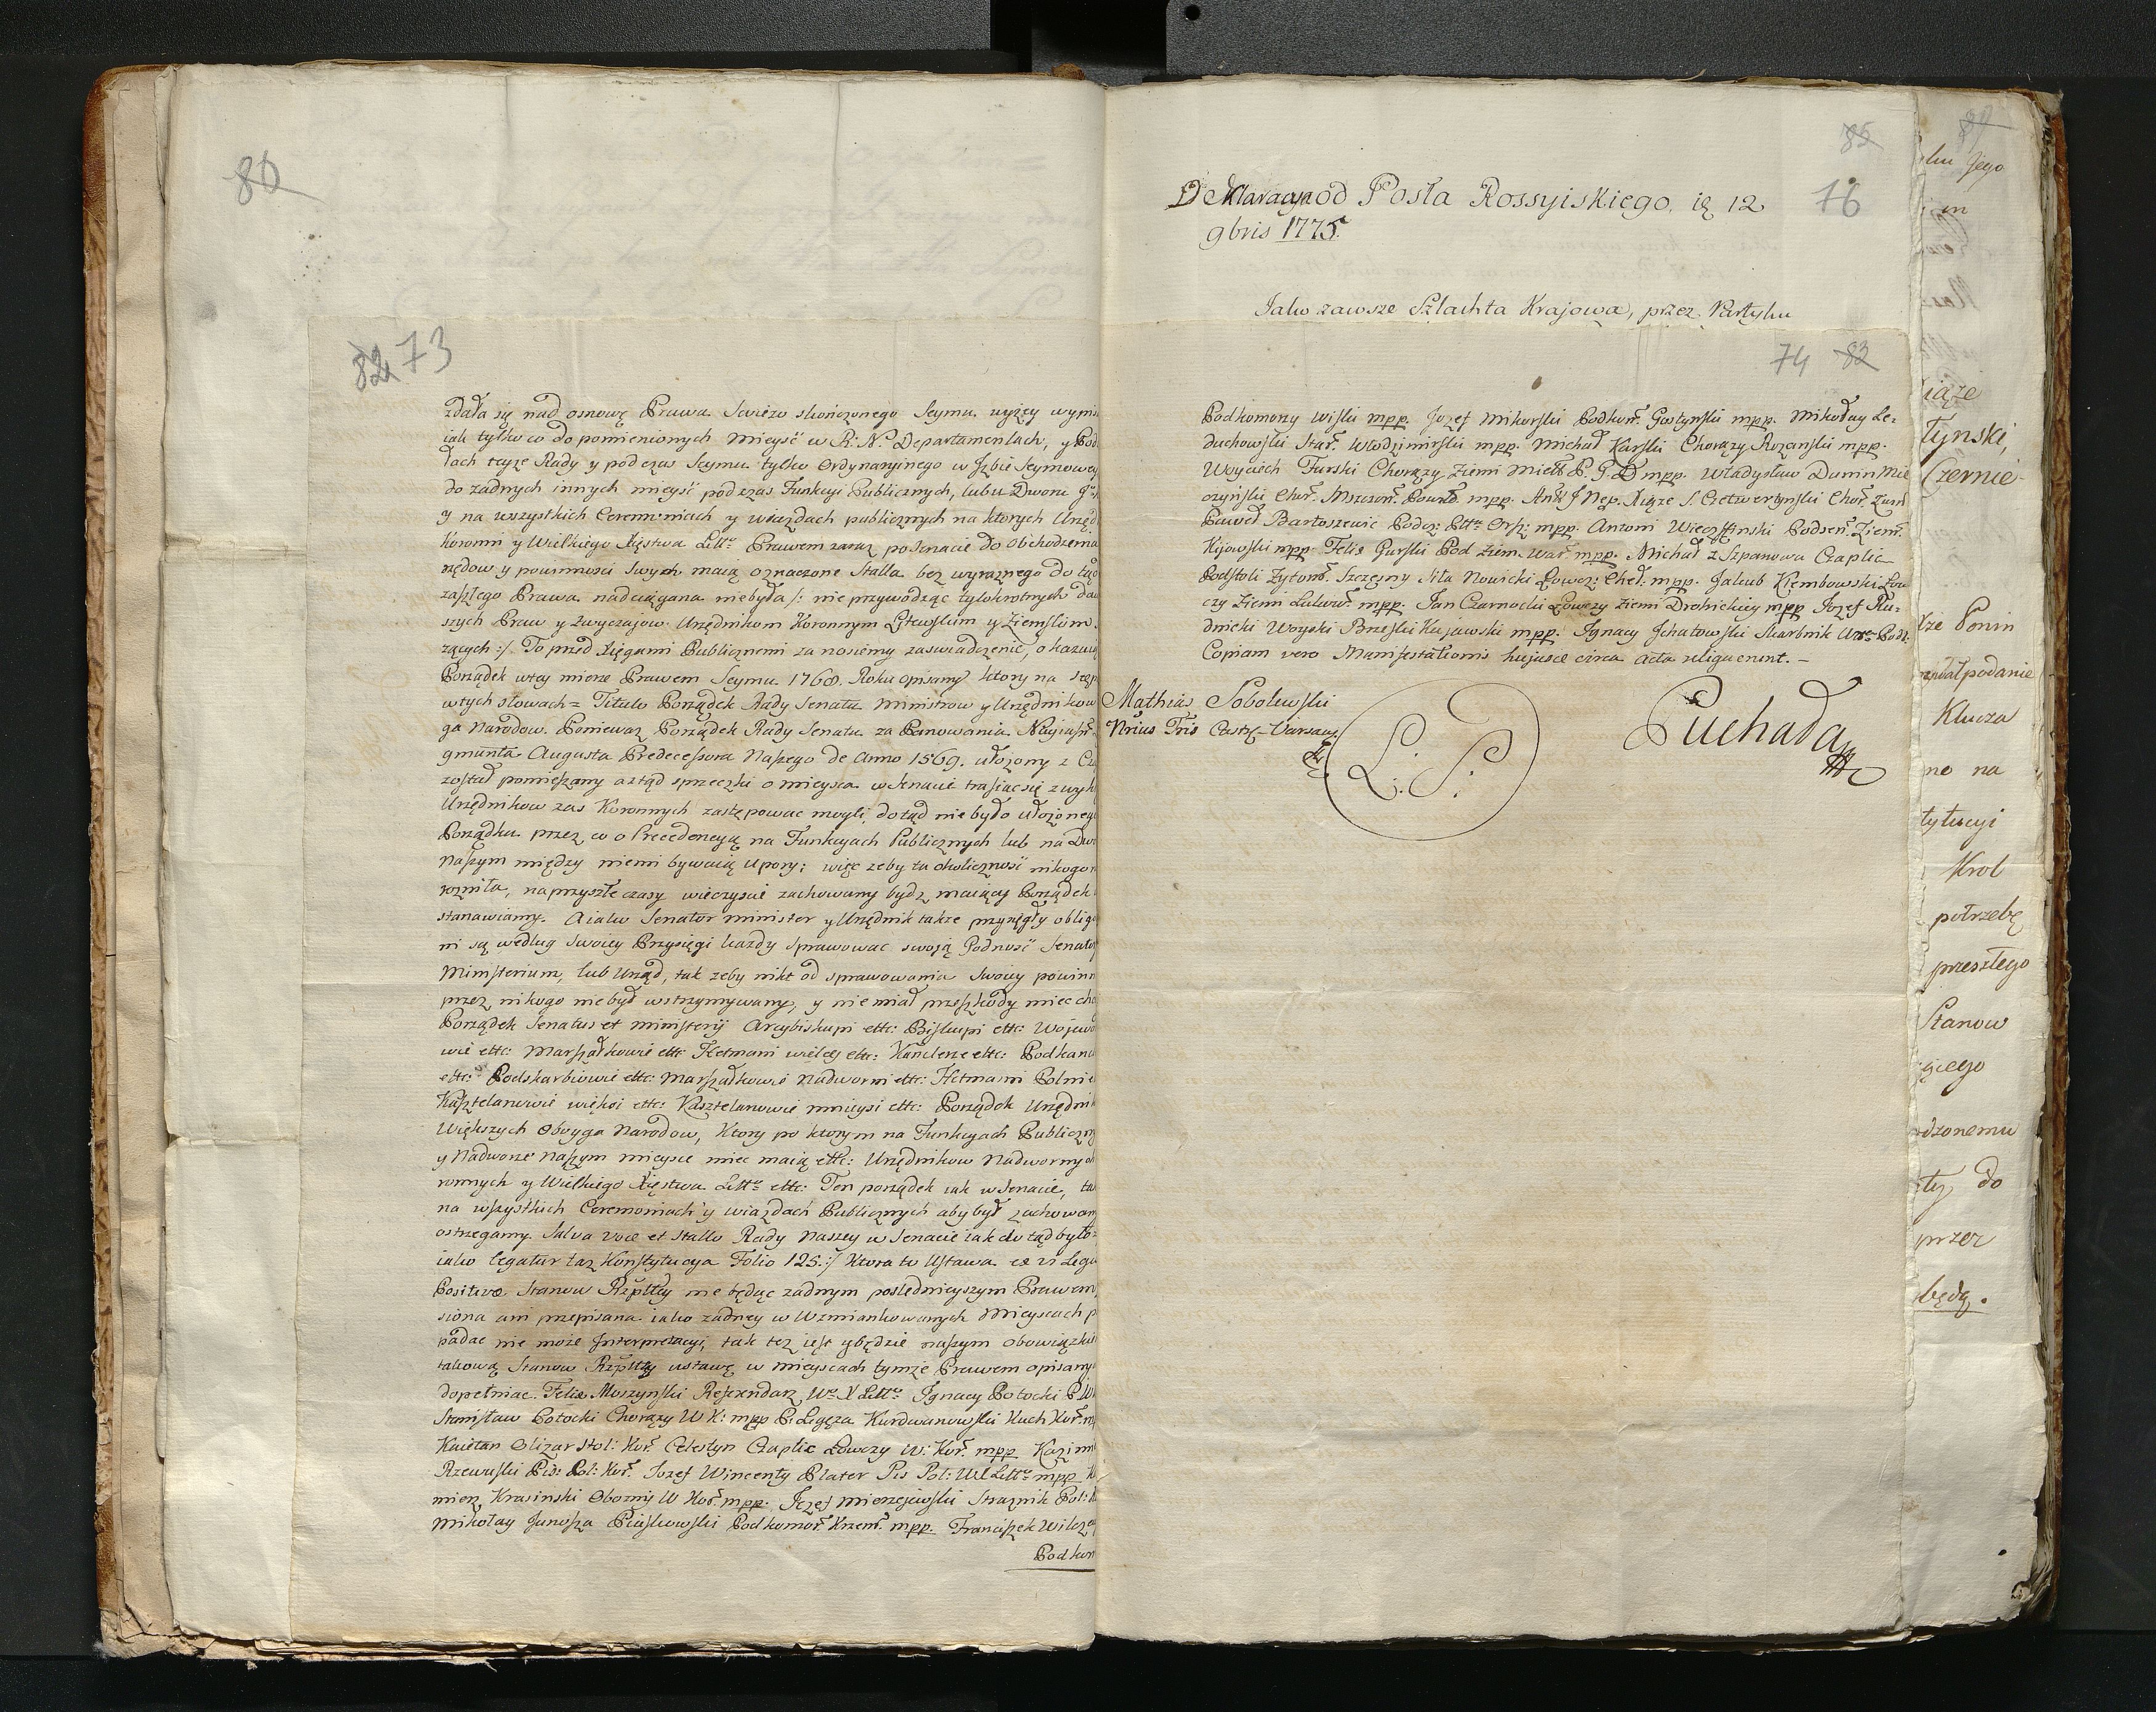 80
82 73
zdała się nad osnowę Prawa swieżo skończonego Seymu wyżey wypis
iak tylko co do pomienionych mieysć w R: N: Departamentach, y Pod
łach teyże Rady y podczas Seymu tylko Ordynaryinego w Jzbie Seymowey
do żadnych innych mieysć podczas Funkcyi Publicznych, lub u Dworu
y na wszystkich Ceremoniach y wiazdach publicznych na ktorych Urzęd
Koronni y Wielkiego Xięstwa Litt: Prawem zaraz po Senacie do obchodzenia
rzędow y powinności swych maią oznaczone Stalla bez wyraznego do tąd
zaszłego Prawa nadciągana niebyła /: nie przywodząc tylokrotnych da
szych Praw y Zwyczaiow Urzędnikom Koronnym Littewskim y Ziemskim
rzących :/ To przed Xięgami Publicznemi zanosiemy zaswiadczenie, okazuią
Porządek w tey mierze Prawem Seymu 1768. Roku opisany ktory na
w tych słowach = Titulo Porządek Rady Senatu Ministrow y Urzędnikow
ga Narodow. Ponieważ Porządek Rady Senatu za Panowania Nayiaśn
gmunta Augusta Predecessora Naszego de Anno 1569. ułożony z
został pomieszany a ztąd sprzeczki o mieysca w Senacie trafiac się zwyk
Urzędnikow zas Koronnych zastępowac mogli, dotąd nie było ułożoneg
Porządku przez co o Precedencyą na Funkcyach Publicznych lub na Dwo
Naszym między niemi bywaią upory; więc zeby ta okoliczność nikogo
rozniła, na przyszłe czasy wieczyscie zachowany bydź maiący Porządek
stanawiamy. A iako Senator Minister y Urzędnik także przysięgły oblig
ni są według swoiey Przysięgi kazdy sprawowac swoią Godność Senator
Ministerium, lub Urząd, tak zeby nikt od sprawowania swoiey powinn
przez nikogo nie był wstrzymywany, y nie miał przeszkody miec chc
Porządek Senatus et Ministerij Arcybiskupi ettc: Biskupi ettc: Wojewo
wie ettc: Marszałkowie ettc: Hetmani wielcy ettc: Kanclerze ettc: Podkanc
ettc: Podskarbiowie ettc: Marszałkowie Nadworni ettc: Hetmani Polni e
Kasztelanowie więksi ettc: Kasztelanowie mnieysi ettc: Porządek Urzędnik
Większych Oboyga Narodow, Ktory po ktorym na Funkcyach Publiczn
y Nadworze Naszym mieysce miec maią ettc: Urzędnikow Nadwornych
ronnych y Wielkiego Xięstwa Litt: ettc: Ten porządek iak w Senacie, ta
na wszystkich Ceremoniach y wiazdach Publicznych aby był zachowan
ostrzegamy. Salva voce et Stallo Rady Naszey w Senacie iak do tąd było
iako legatur taz Konstytucya Folio 125 :/ Ktora to Ustawa ex vi Lege
Positiva Stanow Rzpltey nie będąc żadnym poslednieyszym Prawem
siona ani przepisana iako żadney w Wzmiankowanych Mieyscach p
padac nie może Jnterpretacyi, tak tez iest y będzie naszym obowiązki
takową Stanow Rzpltey ustawę w mieyscach tymże Prawem opisany
dopełniac. Felix Moszynski Referendarz W X Litt: Jgnacy Potocki P W
Stanisław Potocki Chorąży W K: mpp P: Ligęza Kurdwanowski Kuch Kor: m
Kaietan Olizar Stol: Kor: Celestyn Czaplic Łowczy W: Kor: mpp Kazimi
Rzewuski Pis: Pol: Kor: Jozef Wincenty Plater Pis Pol: W X Litt: mpp K
mierz Krasinski Obozny W Kor: mpp. Jozef Mierzejewski Straznik Pol:
Mikołay Junosza Piaskowski Podkomor: Krzem: mpp. Franciszek Wilcze
Podkom
85
76
Deklaracya od Posła Rossyiskiego, ię 12
9bris 1775.
Jako zawsze Szlachta Krajowa, przez Partyku
74 83
Podkomorzy Wiski mpp. Jozef Mikorski Podkom: Gostynski mpp. Mikołay Le-
duchowski Star: Włodzimirski mpp. Michał Karski Chorąży Rozanski mpp.
Woyciech Turski Chorąży Ziemi Miel: P. G. D mpp. Władysław Dunin Mie
czyński Chor: Mrzerow: Powt: mpp. Ant: J Nep. Xiąze S. Czetwertynski Chor: Ziem
Paweł Bartoszewic Podcz: Ptt: Orsz: mpp. Antoni Wieczffinski Podsen: Ziem:
Kijowski mpp. Felix Gurski Pod Ziem. War: mpp. Michał z Szpanowa Czaplic
Podstoli Zytom: Szczęsny Siła Nowicki Łowcz: Cheł: mpp. Jakub Kiembowski Łow
czy Ziemi Lukow: mpp. Jan Czarnocki Łowczy Ziemi Drohickiey mpp Jozef Ru-
dnicki Woyski Brzeski Kujawski mpp. Jgnacy Jchatowski Skarbnik Urz: Podl:
Copiam vero Manifestationis hujusce circa Acta reliquerunt. –
Mathias Sobolewski
Nrius Tris Castr: Varsav:
L. S.
Puchała mpp
87
lu Jego
in
iąże
tynski,
Czernie-
że Ponin
podał podanie
Klucza
no na
tytucyi
Krol
potrzebę
przeszłego
Stanow
ącego
dzonemu
ty do
przez
będą.